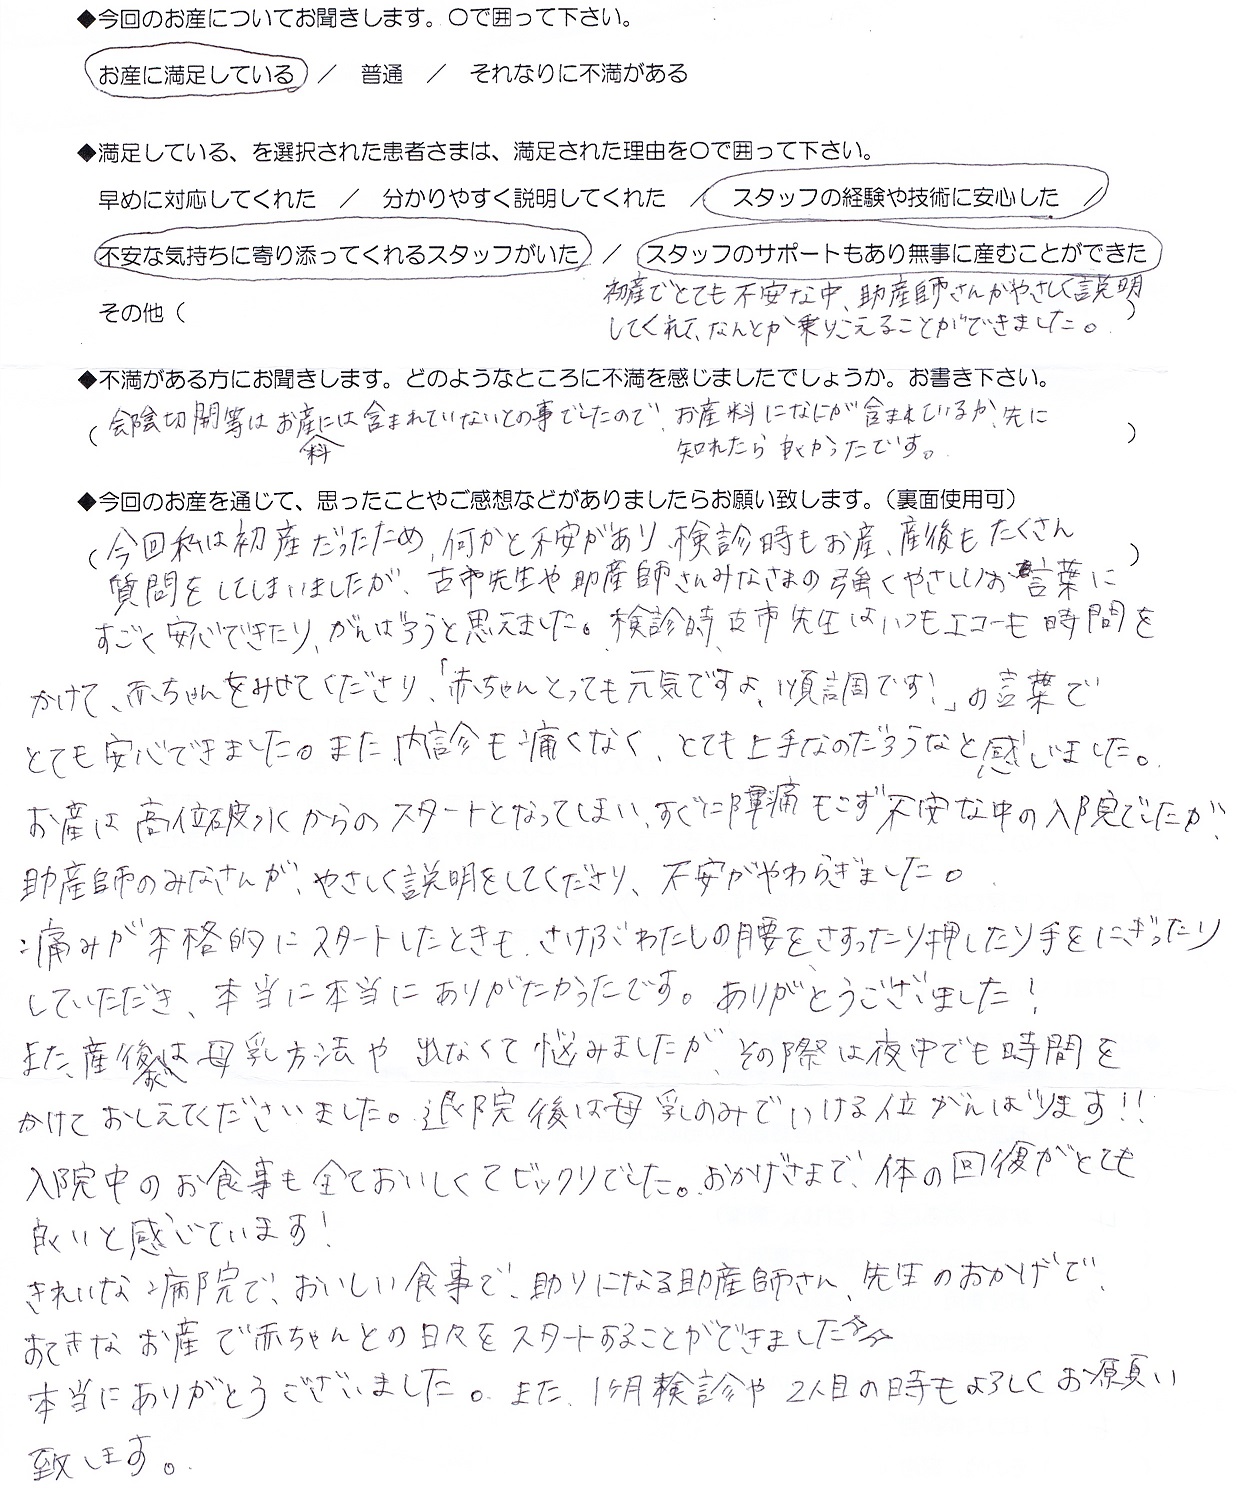 ◆今回のお産についてお聞きします。〇で囲って下さい。
お産に満足している ／ 普通 ／ それなりに不満がある
◆満足している、を選択された患者さまは、満足された理由を〇で囲って下さい。
早めに対応してくれた ／ 分かりやすく説明してくれた ／ スタッフの経験や技術に安心した ／
不安な気持ちに寄り添ってくれるスタッフがいた ／ スタッフのサポートもあり無事に産むことができた
初産でとても不安な中、助産師さんがやさしく説明
その他（ ）
してくれて、なんとか乗りこえることができました。
◆不満がある方にお聞きします。どのようなところに不満を感じましたでしょうか。お書き下さい。
（会陰切開等はお産料には含まれていないとの事でしたので、お産料になにが含まれているか、先に
知れたら良かったです。 ）
◆今回のお産を通じて、思ったことやご感想などがありましたらお願い致します。（裏面使用可）
（今回私は初産だったため、何かと不安があり、検診時もお産、産後もたくさん ）
質問をしてしまいましたが、古市先生や助産師さんみなさまの強くやさしいお言葉に
すごく安心できたり、がんばろうと思えました。検診時、古市先生はいつもエコーも時間を
かけて、赤ちゃんをみせてくださり、「赤ちゃんとっても元気ですよ、順調です！」の言葉で
とても安心できました。また、内診も痛くなく、とても上手なのだろうなと感じました。
お産は高位破水からのスタートとなってしまい、すぐに陣痛もこず不安な中の入院でしたが、
助産師のみなさんが、やさしく説明をしてくださり、不安がやわらぎました。
痛みが本格的にスタートしたときも、さけぶわたしの腰をさすったり押したり手をにぎったり
していただき、本当に本当にありがたかったです。ありがとうございました！
また、産後は母乳方法や出なくて悩みましたが、その際は夜中でも時間を
かけておしえてくださいました。退院後は母乳のみでいける位がんばります!!
入院中のお食事も全ておいしくてビックリでした。おかげさまで、体の回復がとても
良いと感じています！
きれいな病院で、おいしい食事で、助りになる助産師さん、先生のおかげで、
すてきなお産で赤ちゃんとの日々をスタートすることができました☆☆
本当にありがとうございました。また、1ヶ月検診や2人目の時もよろしくお願い
致します。